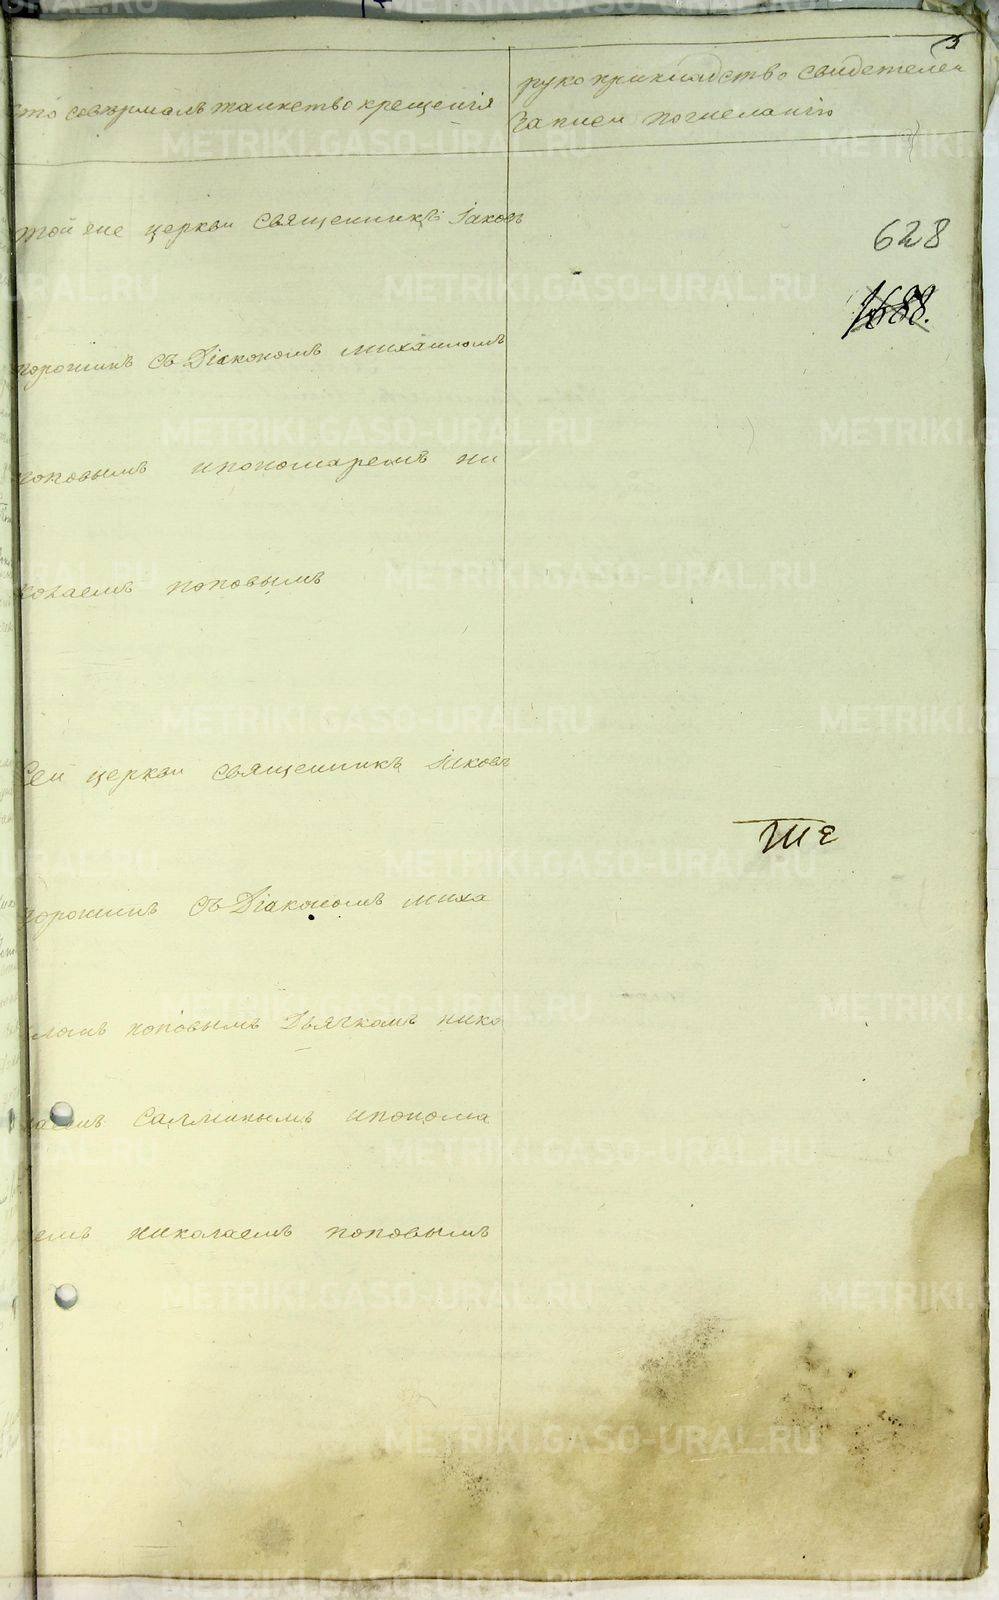 3
кто совершалъ таинство крещенія
рукоприкладство свидетелей
записи пожеланію
той же церкви священникъ Іаковъ
628
1688.
порошинъ съ Діакономъ михаиломъ
поповымъ ипономаремъ ни
колаемъ поповымъ
Сей церкви священникъ Іаковъ
ше
порошинъ съ Діакономъ миха
иломъ поповымъ Дьячкомъ нико
лаемъ ипонома
ремъ николаемъ поповымъ
METRIKI.GASO-URAL.RU